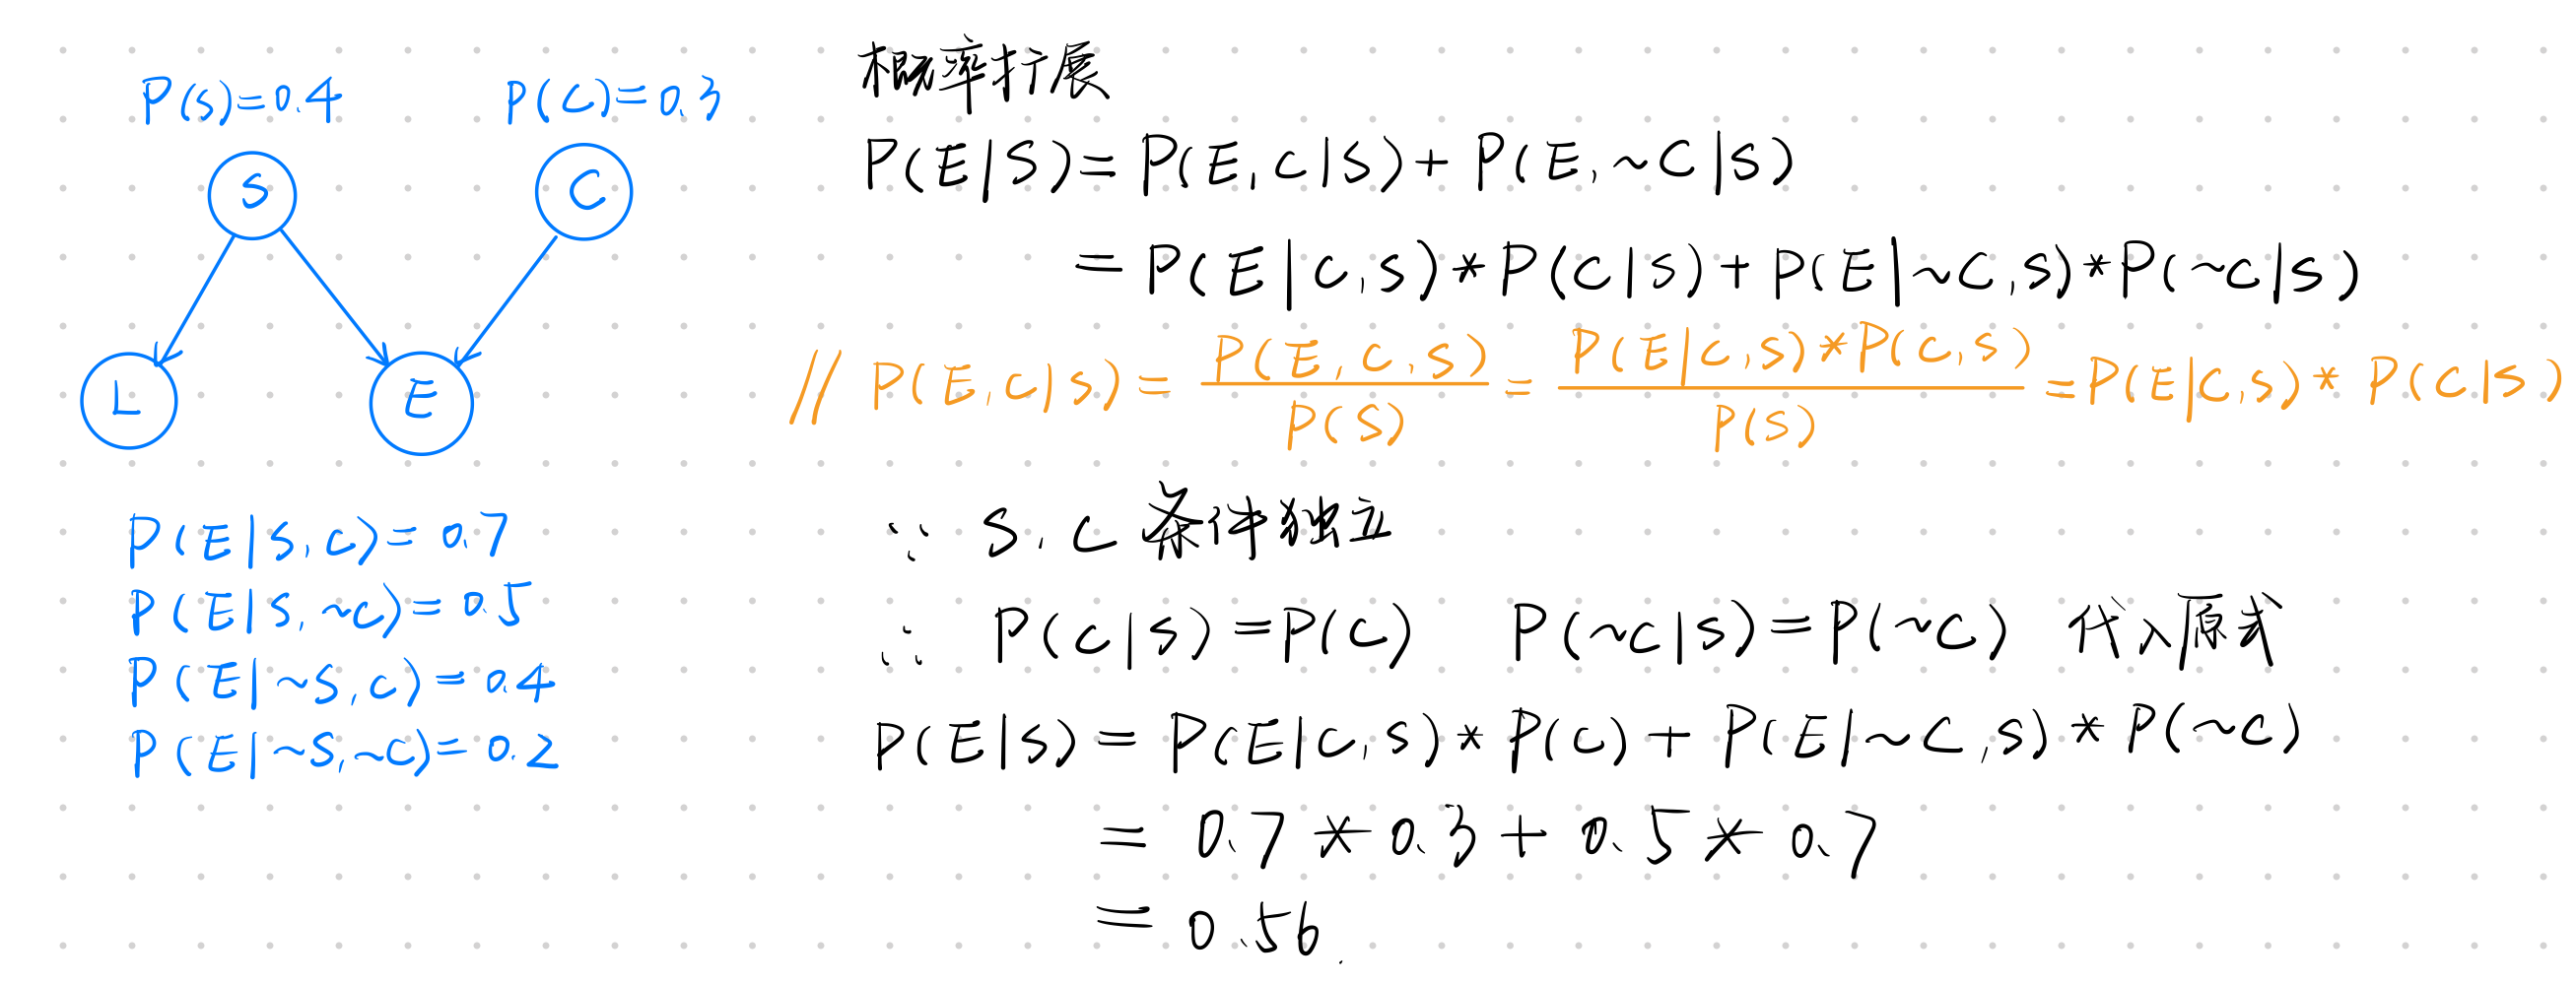 P(S)=0.4
P(C)=0.3
S
C
L
E
P(E|S,C)=0.7
P(E|S,~C)=0.5
P(E|~S,C)=0.4
P(E|~S,~C)=0.2
概率扩展
P(E|S)=P(E,C|S)+P(E,~C|S)
=P(E|C,S)*P(C|S)+P(E|~C,S)*P(~C|S)
// P(E,C|S)=P(E,C,S)/P(S)=P(E|C,S)*P(C,S)/P(S)=P(E|C,S)*P(C|S)
∵ S,C条件独立
∴ P(C|S)=P(C) P(~C|S)=P(~C) 代入原式
P(E|S)=P(E|C,S)*P(C)+P(E|~C,S)*P(~C)
=0.7*0.3+0.5*0.7
=0.56.